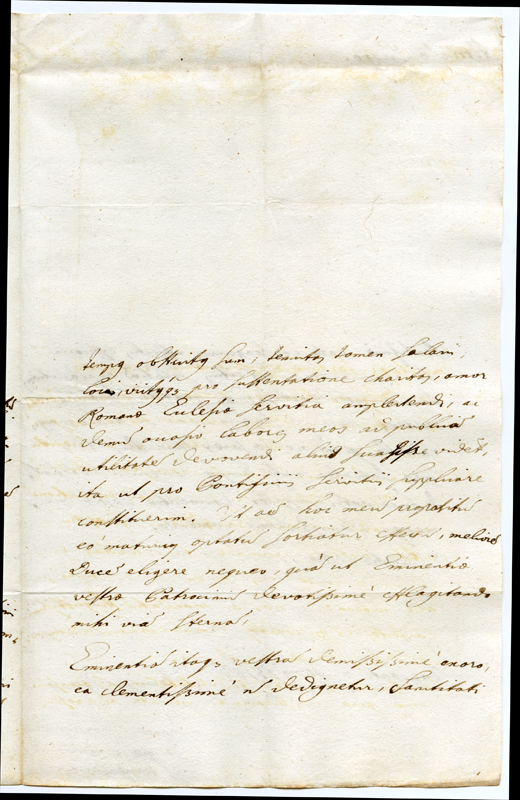 tempq obstrictq sum, tenuitas tamen salarii,
loci, victusq; pro sustentatione charitas, amor
Romanæ Ecclesiæ servitia amplectendi, ac
demū occasio labores meos ad publicā
utilitatē devovendi aliud suasisse videt,
ita ut pro Pontificiis servitiis supplicare
constituerim. Ut ad hoc meū propositū
eò maturiq optatū sortiatur effectū, meliorē
Ducē eligere nequeo, quā ut Eminentiæ
vestræ Patrocinium devotissimè efflagitando
mihi viā sternā,
Eminentiā itaq; vestrā demississimè exoro,
ea clementissimè nō dedignetur, Sanctitati